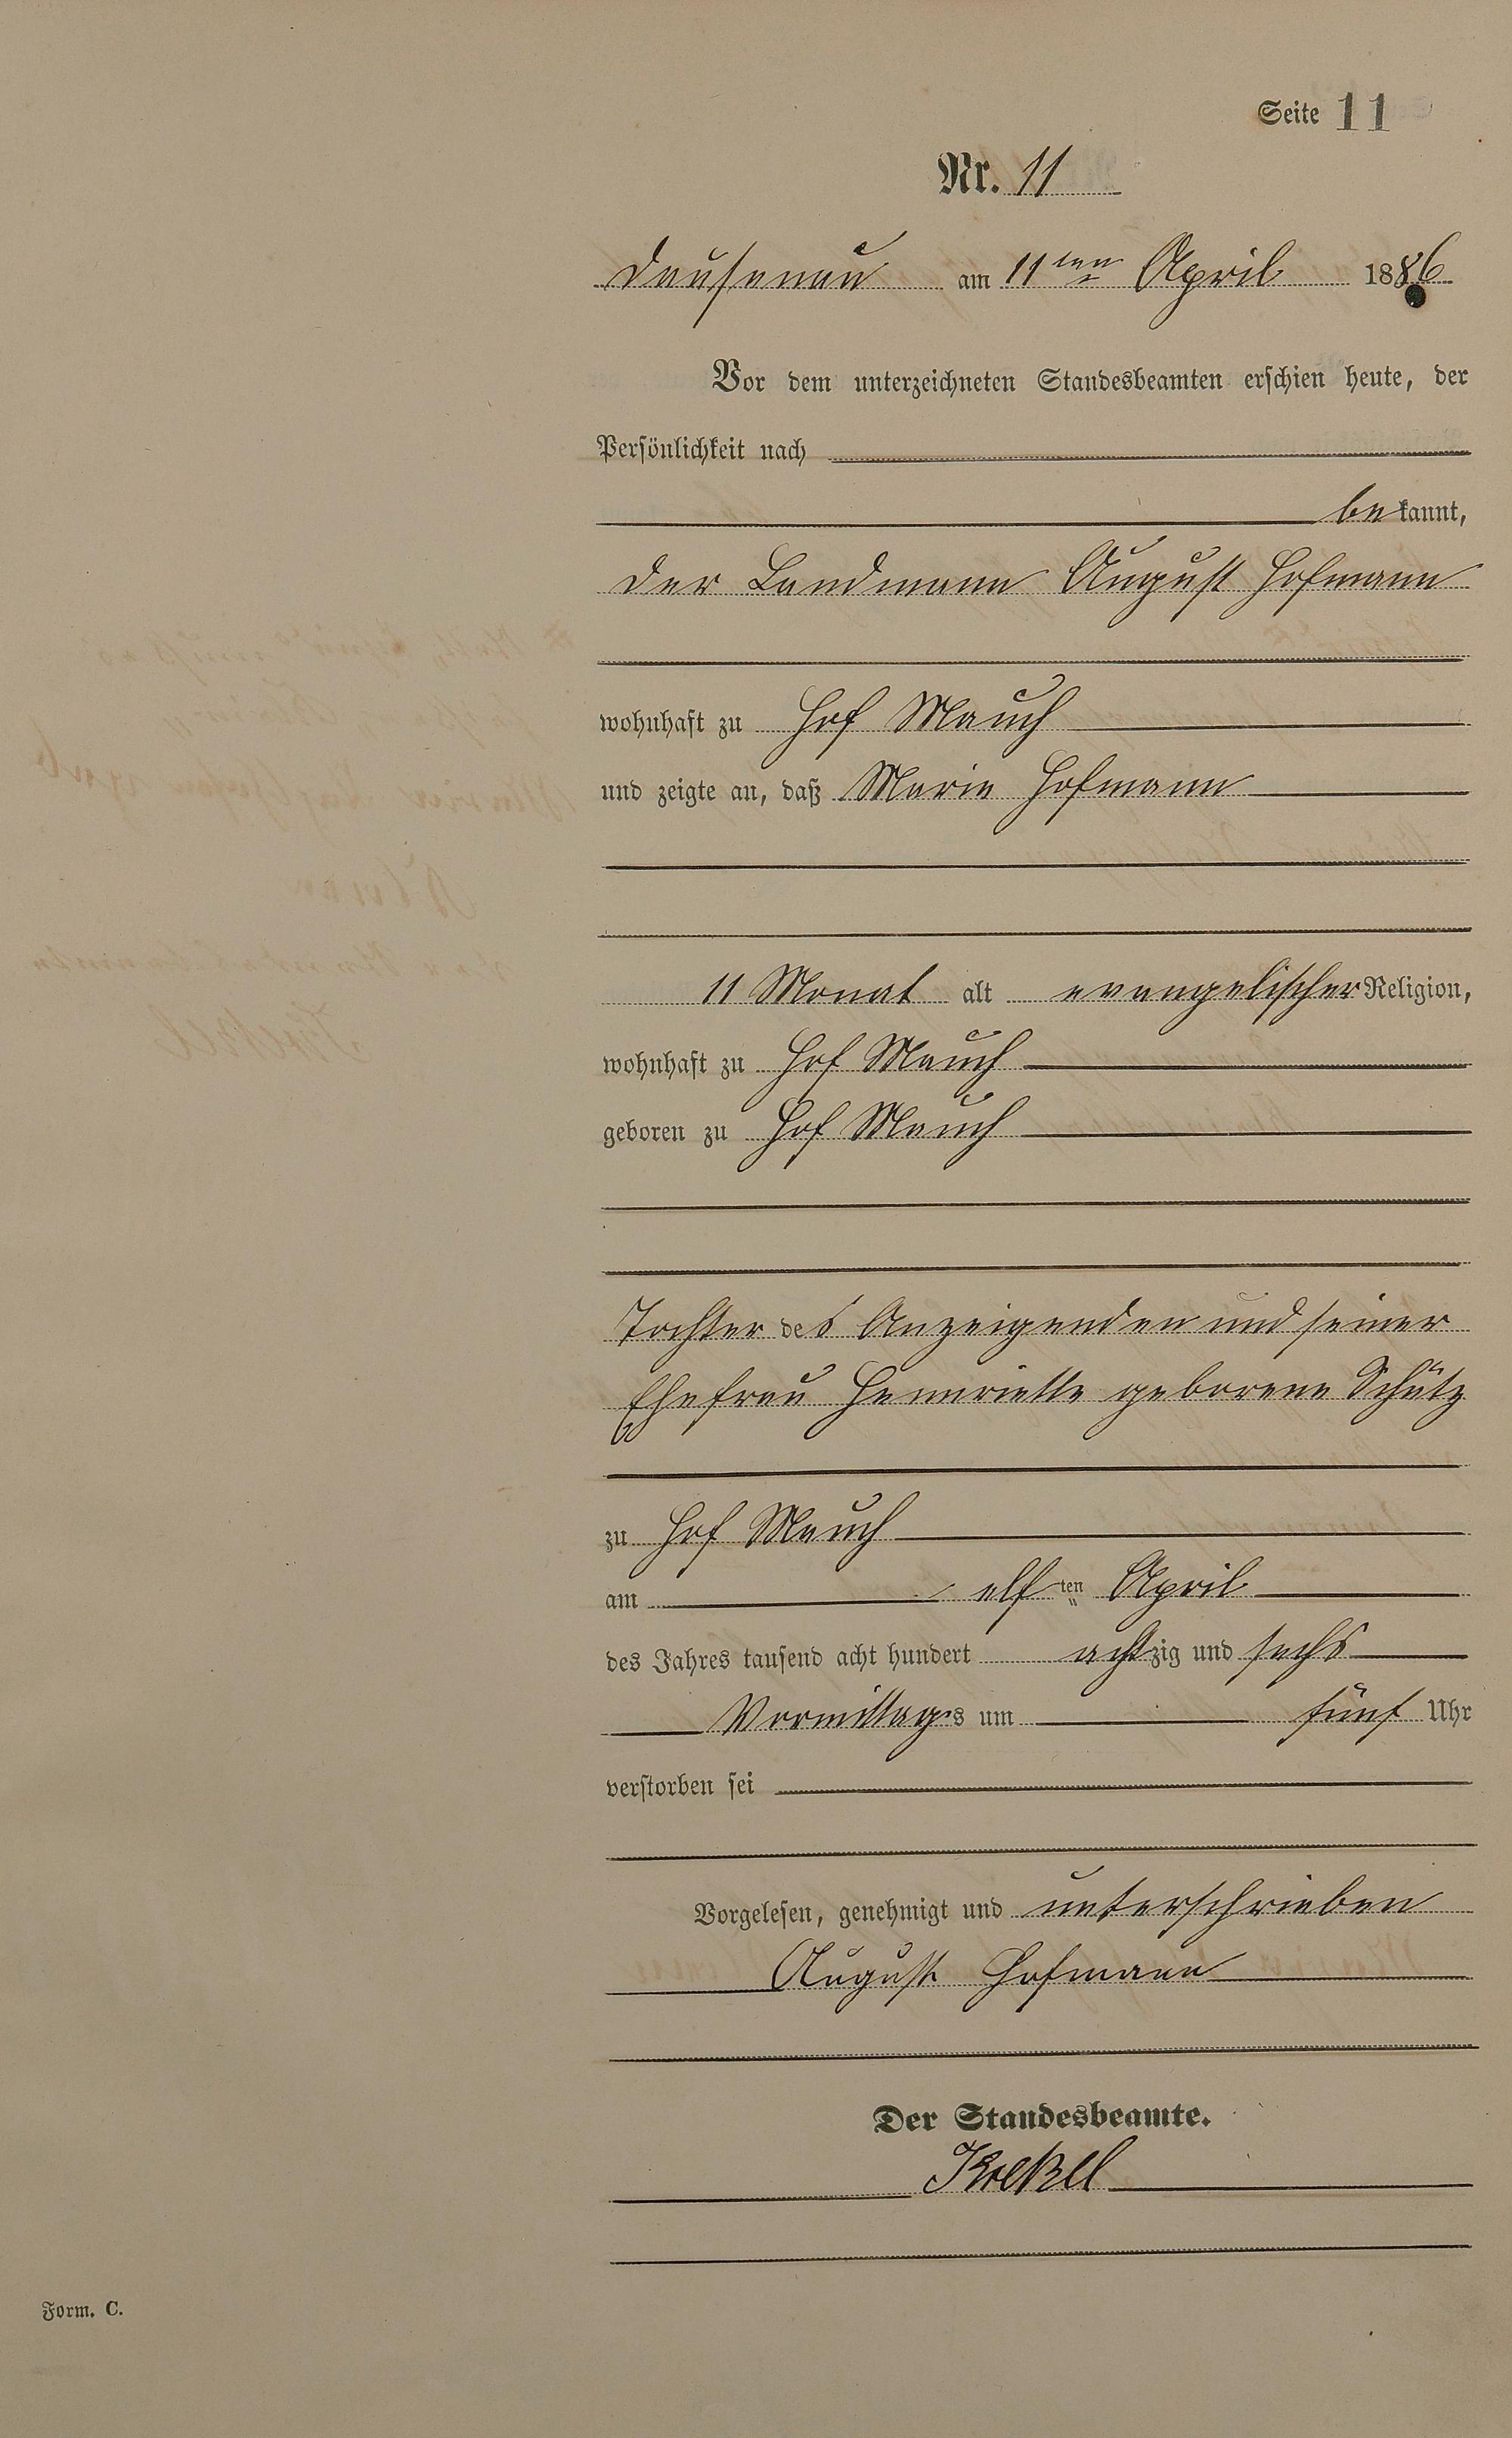 Seite 11
Nr. 11
Dausenau am 11ten April 1886
Vor dem unterzeichneten Standesbeamten erschien heute, der
Persönlichkeit nach
bekannt,
der Landmann August Hofmann
wohnhaft zu Hof Mauch
und zeigte an, daß Marie Hofmann
11 Monat alt evangelischer Religion,
wohnhaft zu Hof Mauch
geboren zu Hof Mauch
Tochter des Anzeigenden und seiner
Ehefrau Henriette geborene Schütz
zu Hof Mauch
am elften April
des Jahres tausend acht hundert achtzig und sechs
Vormittags um fünf Uhr
verstorben sei
Vorgelesen, genehmigt und unterschrieben
August Hofmann
Der Standesbeamte.
Form. C.